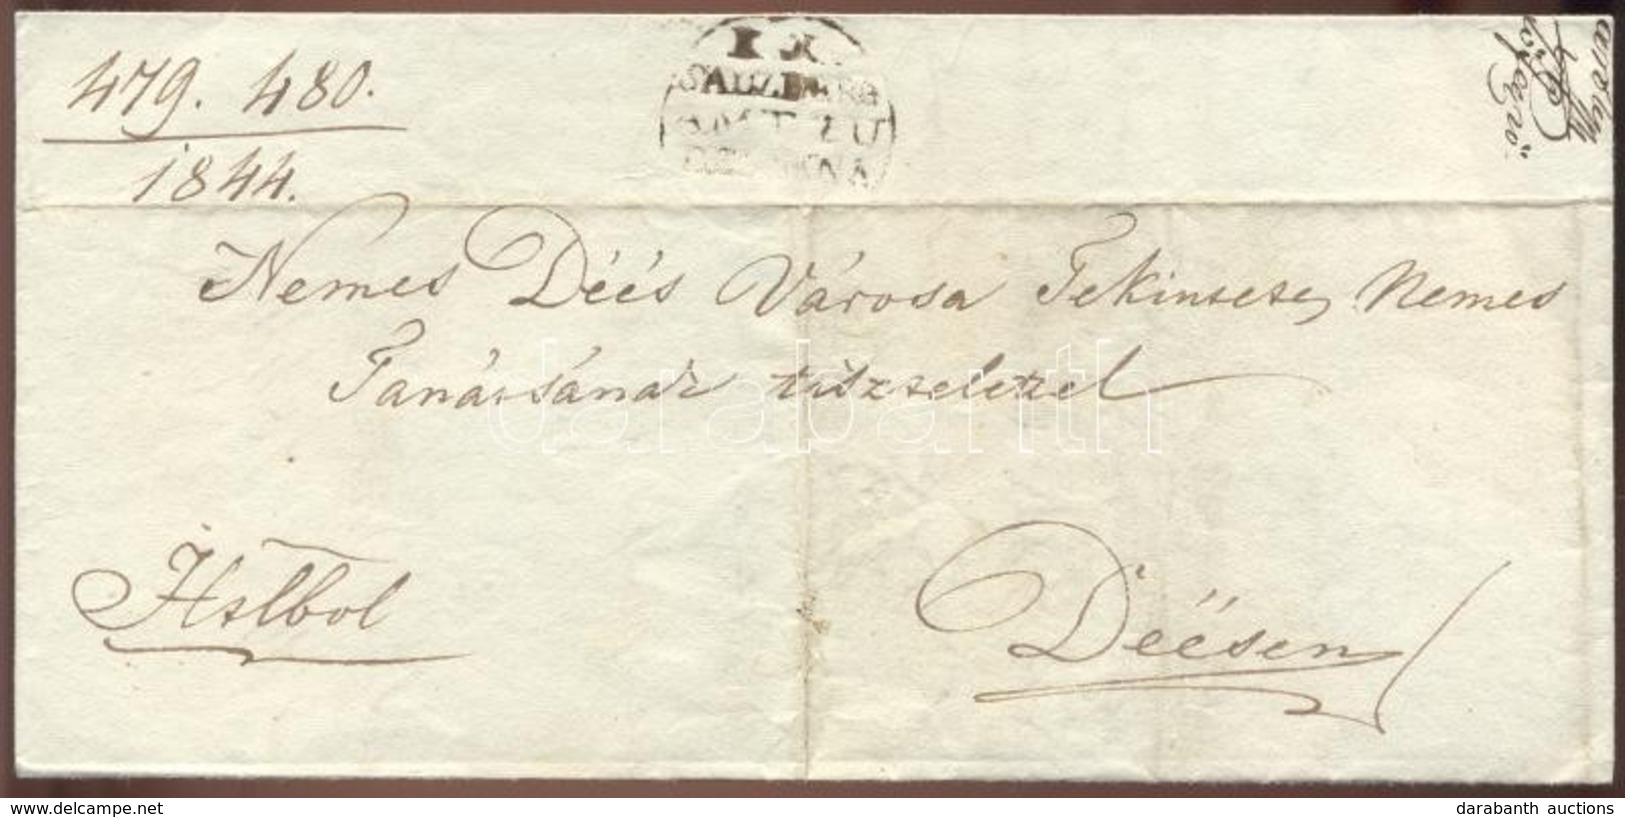 479. 480.
1844.
I K
SALZBERG
AMT ZU
Nemes Déés Várossa Tekintetes Nemes
Tanácsának tisztelettel
Déésen
darabanth
www.delcampe.net
darabanth auctions